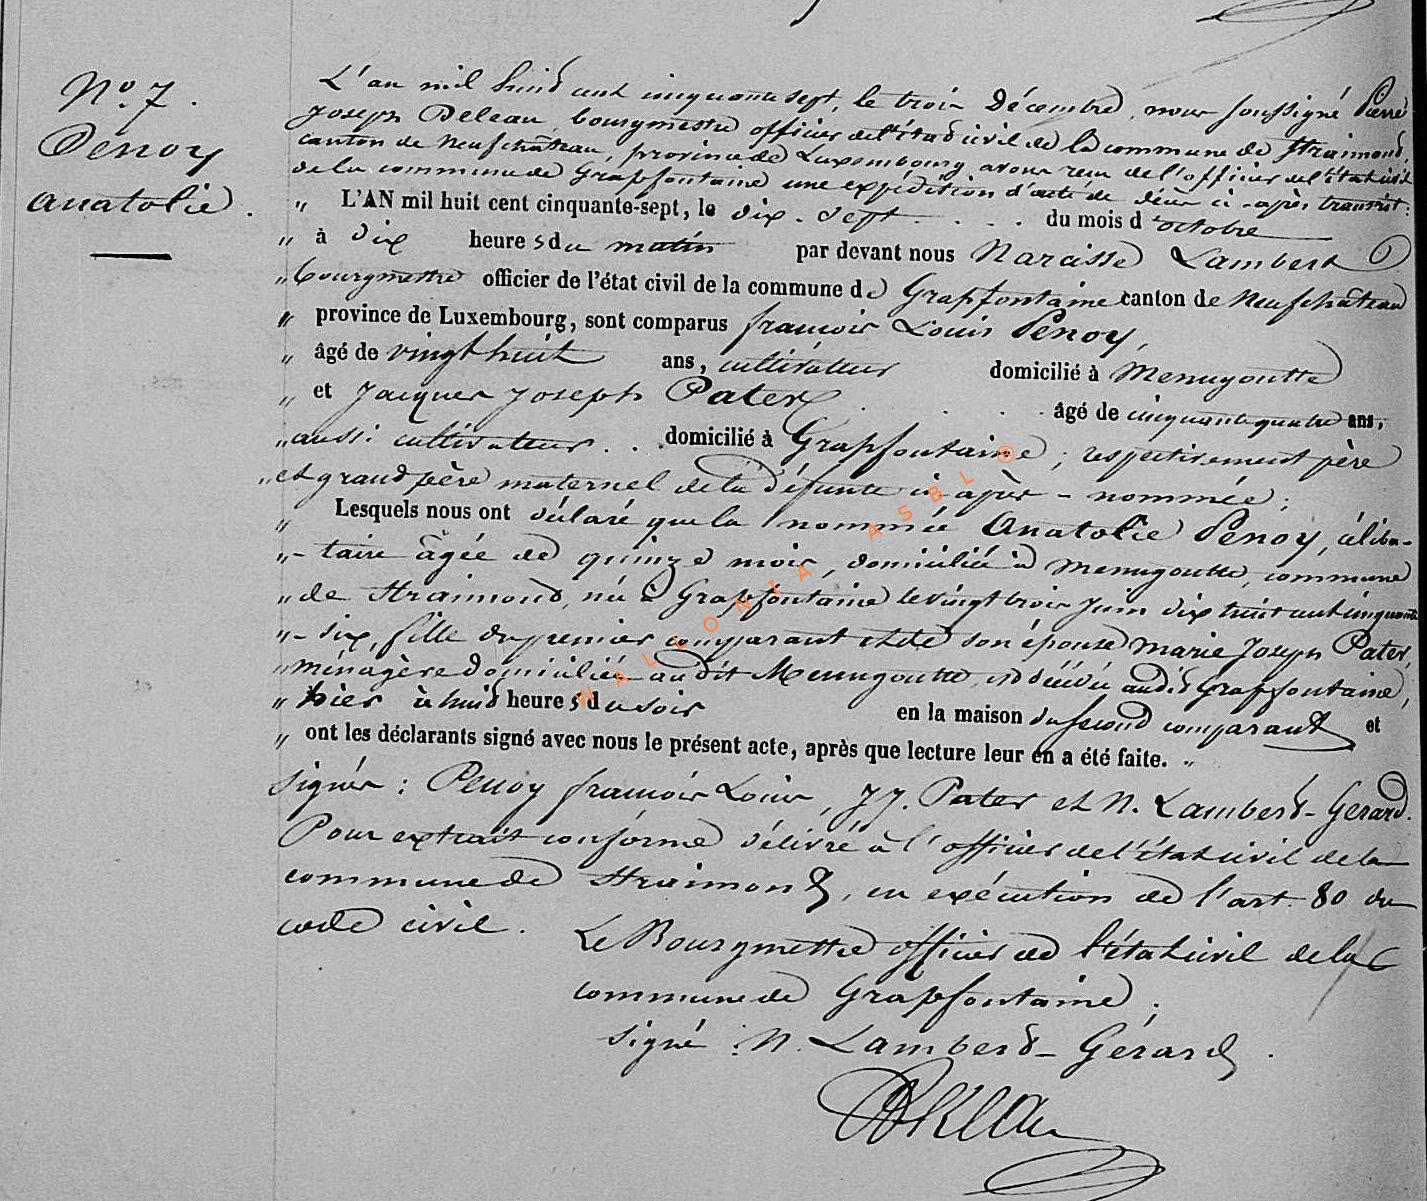 N°. 7.
Penoy
anatolie.
L'an mil huit cent cinquante sept, le trois Décembre, nous soussigné Pierre
Joseph Deleau, bourgmestre officier de l'état civil de la commune de Straimond,
canton de Neufchâteau, province de Luxembourg, avons reçu de l'officier de l'état civil
de la commune de Grapfontaine une expédition d'acte de décès ci-après transcrit :
" L'AN mil huit cent cinquante-sept, le dix-sept . . . . du mois d'octobre
" à dix heures du matin par devant nous Narcisse Lambert
" bourgmestre officier de l'état civil de la commune de Grapfontaine canton de Neufchâteau
" province de Luxembourg, sont comparus françois Louis Penoy,
" âgé de vingt huit ans, cultivateur domicilié à Menugoutte
" et Jacques Joseph Pater . . . . âgé de cinquante quatre ans,
" aussi cultivateur . . . domicilié à Grapfontaine ; respectivement père
" et grand père maternel de la défunte ci après - nommée ;
" Lesquels nous ont déclaré que la nommée Anatolie Penoy, céliba-
" - taire âgée de quinze mois, domiciliée à Menugoutte, commune
" de Straimond, née à Grapfontaine le vingt trois Juin dix huit cent cinquante
" - six, fille du premier comparant et de son épouse Marie Joseph Pater,
" ménagère domiciliée au dit Menugoutte, est décédée audit Grapfontaine,
" hier à huit heures du soir en la maison du second comparant et
" ont les déclarants signé avec nous le présent acte, après que lecture leur en a été faite. "
signés : Penoy françois Louis, J J. Pater et N. Lambert-Gerard.
Pour extrait conforme délivré à l'officier de l'état civil de la
commune de Straimond, en exécution de l'art. 80 du
code civil.
Le Bourgmestre officier de l'état civil de la
commune de Grapfontaine ;
signé : N. Lambert-Gérard.
Deleau
WALLONIA ASBL ®